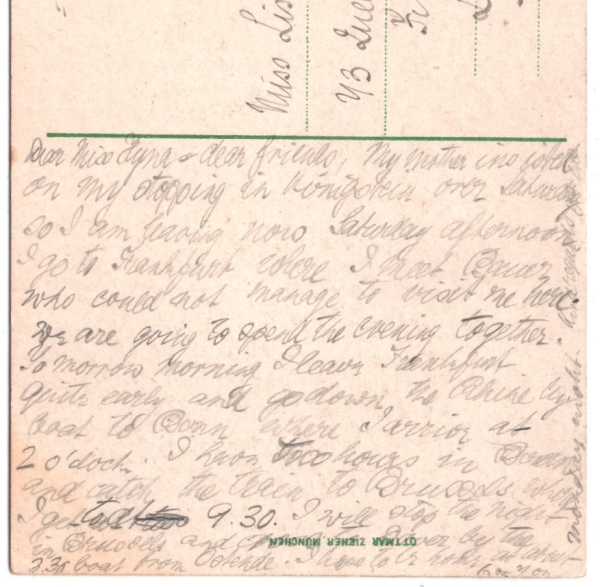 Miss Lis
43 Que
Dear Miss Lyna & dear friends, My mother insisted
on my stopping in Königstein over Saturday
so I am leaving now Saturday afternoon.
I go to Frankfurt where I meet
who could not manage to visit me here.
We are going to spend the evening together.
To morrow morning I leave Frankfurt
quite early and go down the Rhine by
boat to Bonn where I arrive at
2 o'clock. I have two hours in Bonn
and catch the train to Brussels where
I get 9.30. I will stop the night
in Brussels and over by the
3.35 boat from Ostende. I hope to be home at about
6 or
monday night.
OTTMAR ZIEHER, MÜNCHEN